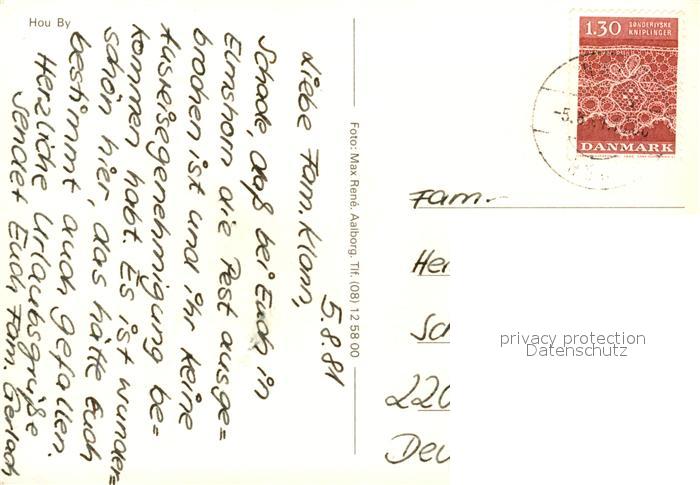 Hou By
5.8.81
Liebe Fam. Klann,
Schade, daß bei Euch in
Elmshorn die Pest ausge=
brochen ist und ihr keine
Ausreisegenehmigung be=
kommen habt. Es ist wunder=
schön hier, das hätte Euch
bestimmt auch gefallen.
Herzliche Urlaubsgrüße
sendet Euch Fam. Gerlach
Foto: Max René. Aalborg. Tlf. (08) 12 58 00
1.30 SØNDERJYSKE
KNIPLINGER
DANMARK
Fam.
220
privacy protection
Datenschutz